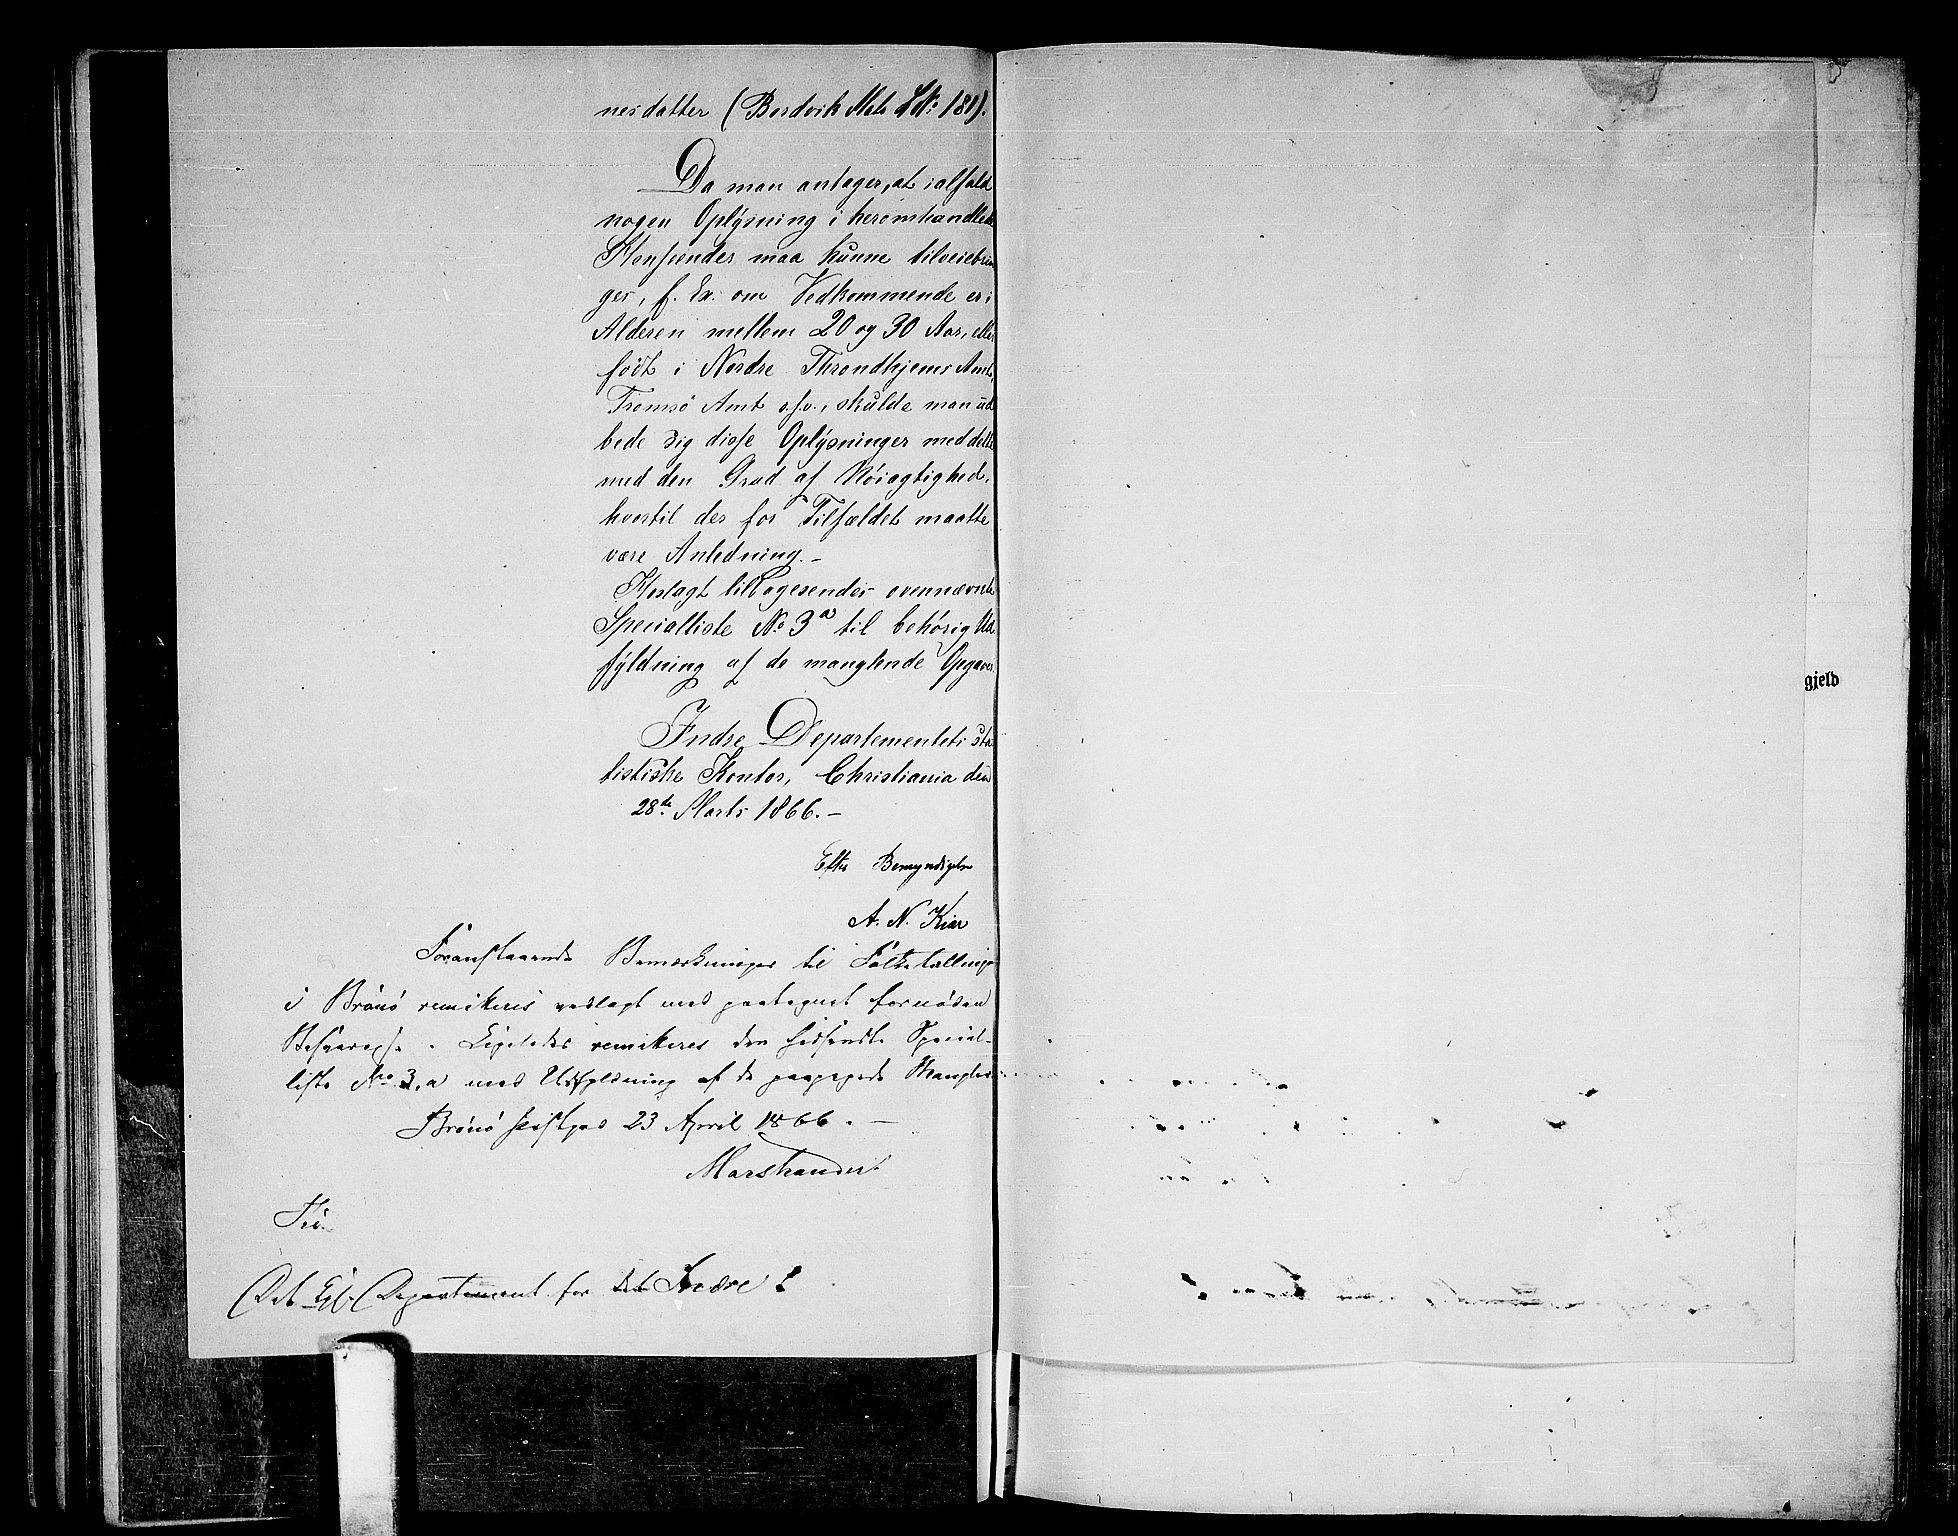 nesdatter (Bordvik Mat. L№ 181).
Da man antager, at ialfald
nogen Oplysning i heromhandlede
Henseender maa kunne tilveiebrin
ges, f. Ex. om Vedkommende er i
Alderen mellem 20 og 30 Aar, eller
født i Nordre Throndhjems Amt,
Tromsø Amt o.s.v., skulde man ud
bede sig disse Oplysninger meddelte
med den Grad af Nøiagtighed,
hvortil der for Tilfældet maatte
være Anledning.—
Herlagt tilbagesendes ovennævnte
Specialliste No 3a til behørig Ud
fyldning af de manglende Opgaver.
Indre Departementets sta
tistiske Kontor, Christiania den
28de Marts 1866.—
Efter Bemyndigelse
A. N. Kiær
Foranstaaende Bemærkninger til Folketællingen
i Brønø remitteres vedlagt med paategnet fornøden
Besvarelse. Ligeledes remitteres den hidsendte Special-
liste No 3,a med Udfyldning af de paapegede Mangler
Brønø Præstgd 23 April 1866.—
Til
Det Kgl. Departement for det Indre
gjeld